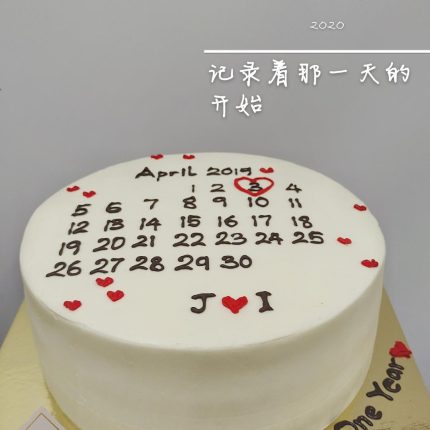 2020
记录着那一天的
开始
April 2019
1 2 3 4
5 6 7 8 9 10 11
12 13 14 15 16 17 18
19 20 21 22 23 24 25
26 27 28 29 30
J I
One Year